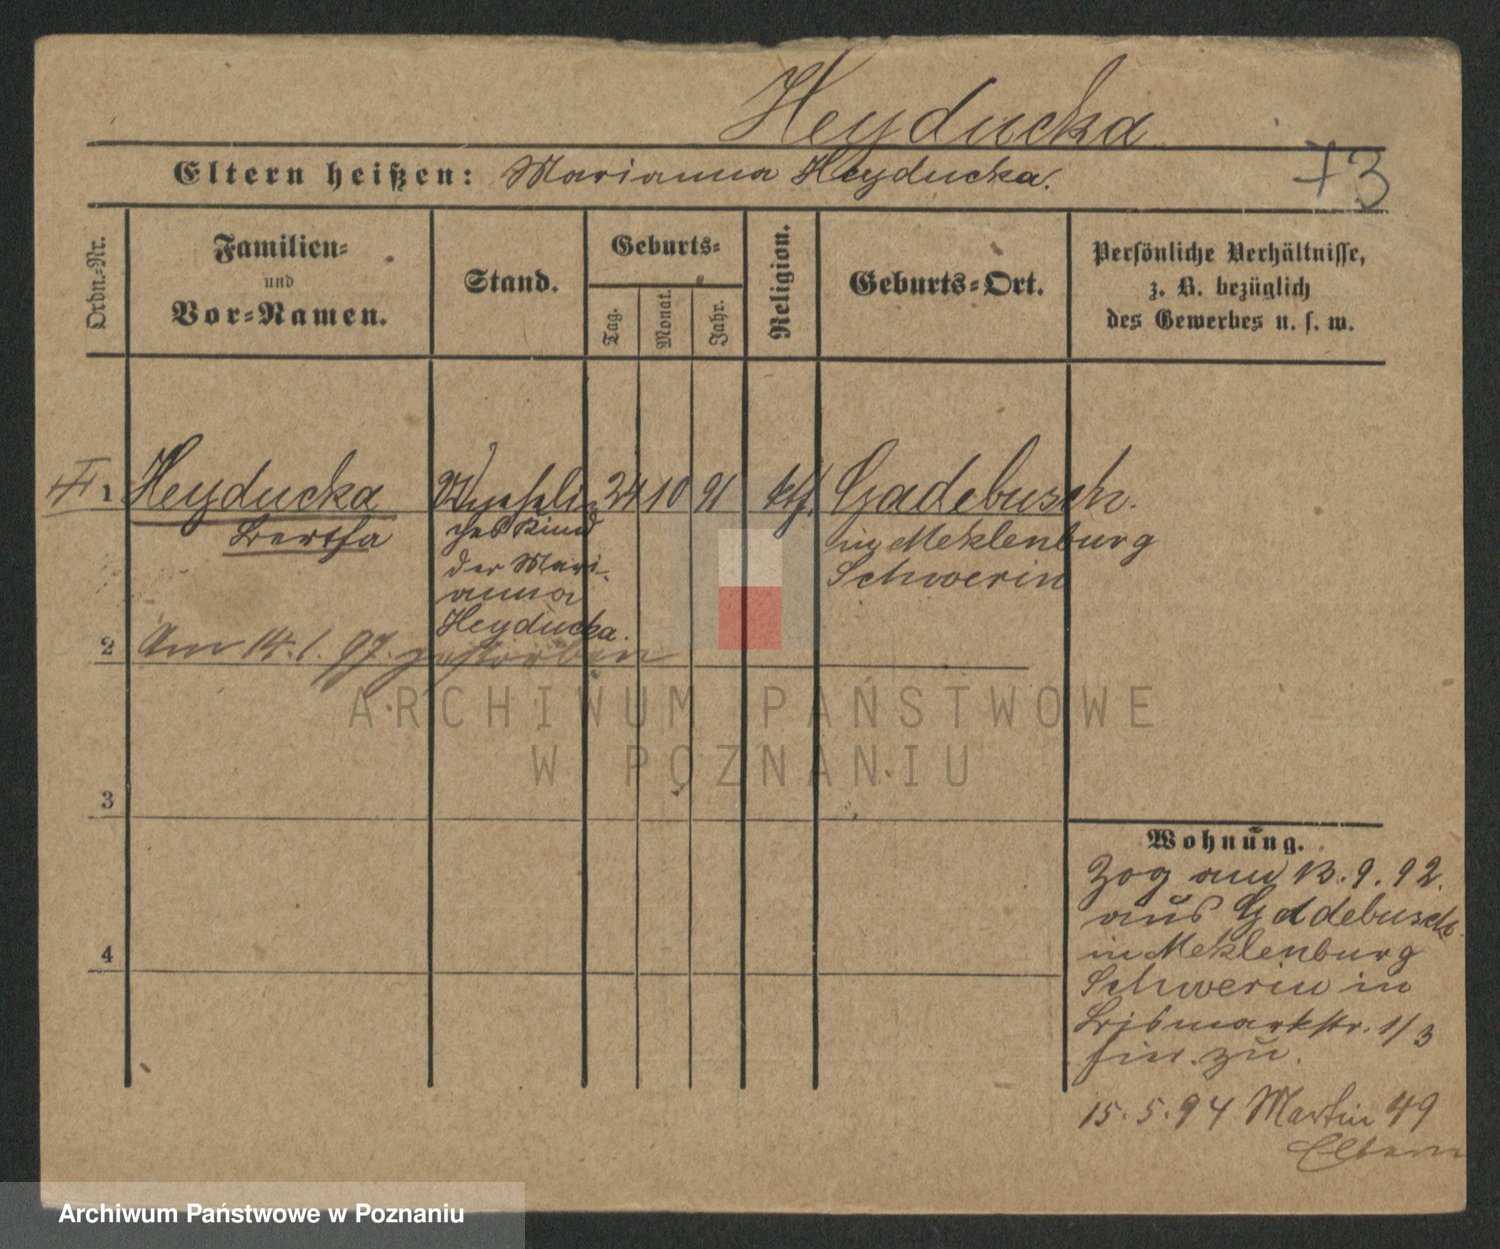 Heyducka
Eltern heißen: Marianna Heyducka.
Ordn.-Nr.
Familien-
und
Vor-Namen.
Stand.
Geburts-
Tag.
Monat.
Jahr.
Religion.
Geburts-Ort.
Persönliche Verhältnisse,
z. B. bezüglich
des Gewerbes u. s. w.
1 Heyducka 24 10 91 kth. Gadebusch.
Bertha
ches Kind
der Mari-
anna
Heyducka.
in Meklenburg
Schwerin
2 Am 14. 1. 97. gestorben
ARCHIWUM PAŃSTWOWE
W POZNANIU
3
4
Wohnung.
Zog am 13. 9. 92.
aus Gadebusch
in Meklenburg
Schwerin in
Bismarkstr. 1/3
hier zu.
15. 5. 94 Martin 49
Eltern
Archiwum Państwowe w Poznaniu